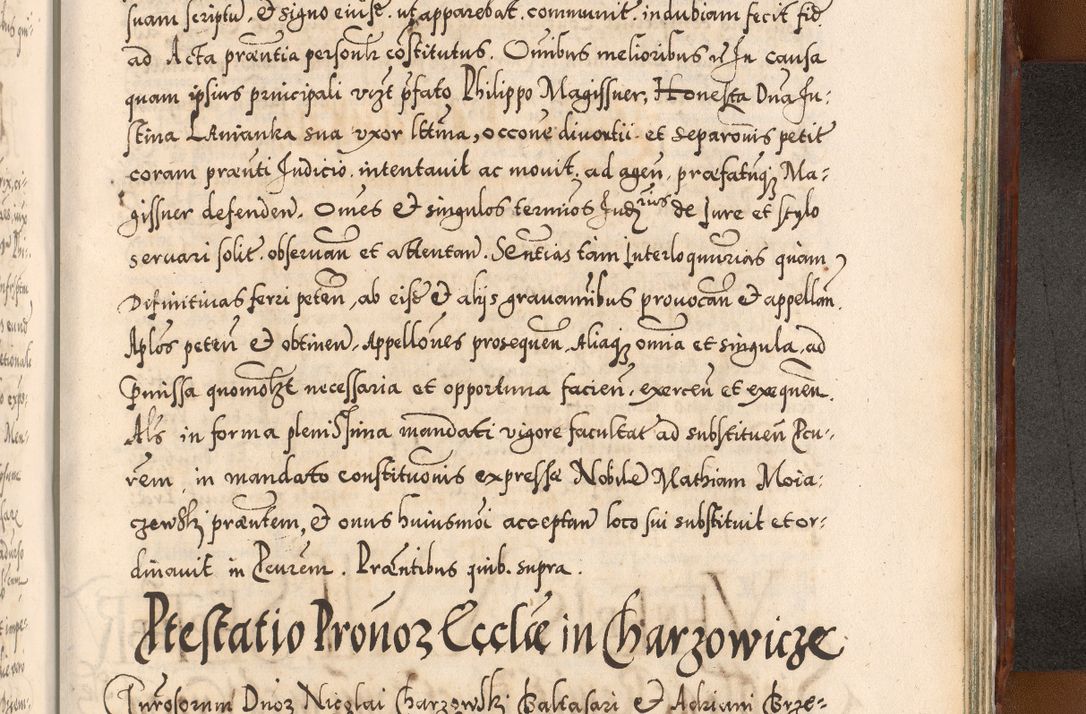 suam scriptu, et signo eiusq. ut apparebat. communit. indubiam fecit fid
ad Acta præntia personlr cõstitutus. Omibus melioribus etc In causa
quam ipsius principali vizt pfato Philippo Magissner, Honesta Dna Ju-
stina Lanianka sua vxor lttma, occone divortii et separonis petit
coram prænti Judicio. intentavit ac movit. ad agen, præfatumq Ma-
gissner defenden. Omes et singulos termios Judrius de Jure et stylo
servari solit. observan et attentan. Sentias tam Interloqutrias quam
Difinitivas ferri peten, ab eisq et alijs gravaminibus provocan et appellan.
Aplos peten et obtinen. Appellones prosequen. Aliaq omia et singula, ad
Pmissa quomolzt necessaria et opportuna facien, exercen et exequen.
Als in forma plenissima mandati vigore facultat ad substituen Pcu-
rem, in mandato constituonis expresse Nobilem Mathiam Moia-
czewskj præntem, et onus huiusmoi acceptan loco sui substituit et or-
dinavit in Pcurem. Præntibus quib. supra.
Ptestatio Pronoz Eccliæ in Charzowicze
Gnrosorum Dnoz Nicolai Charzewskj Baltasari et Adriani Brze-